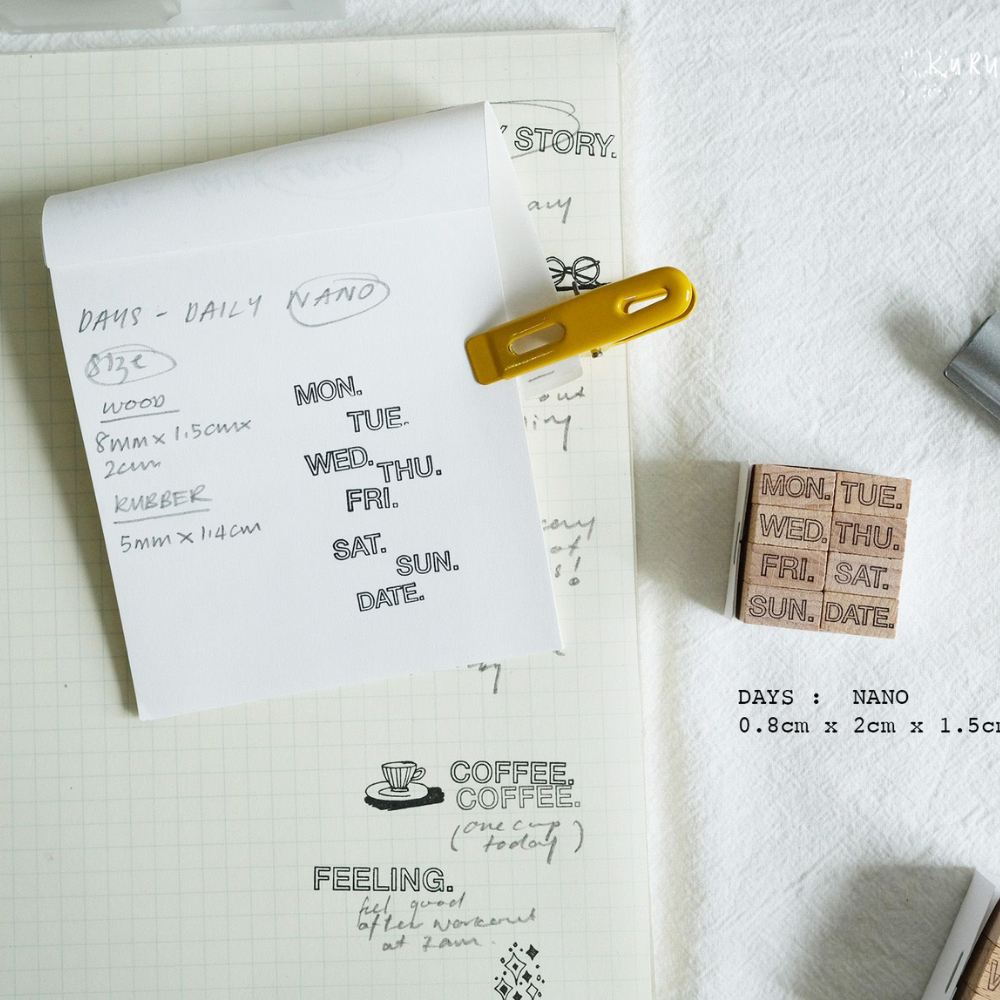 KURU
STORY.
DAYS - DAILY NANO
Size
WOOD
8mm x 1.5cm x
2cm
RUBBER
5mm x 1.4cm
MON.
TUE.
WED. THU.
FRI.
SAT.
SUN.
DATE.
out
of
MON. TUE.
WED. THU.
FRI. SAT.
SUN. DATE.
DAYS : NANO
0.8cm x 2cm x 1.5cm
COFFEE.
COFFEE.
(one cup
today)
FEELING.
feel good
after workout
at 7am.